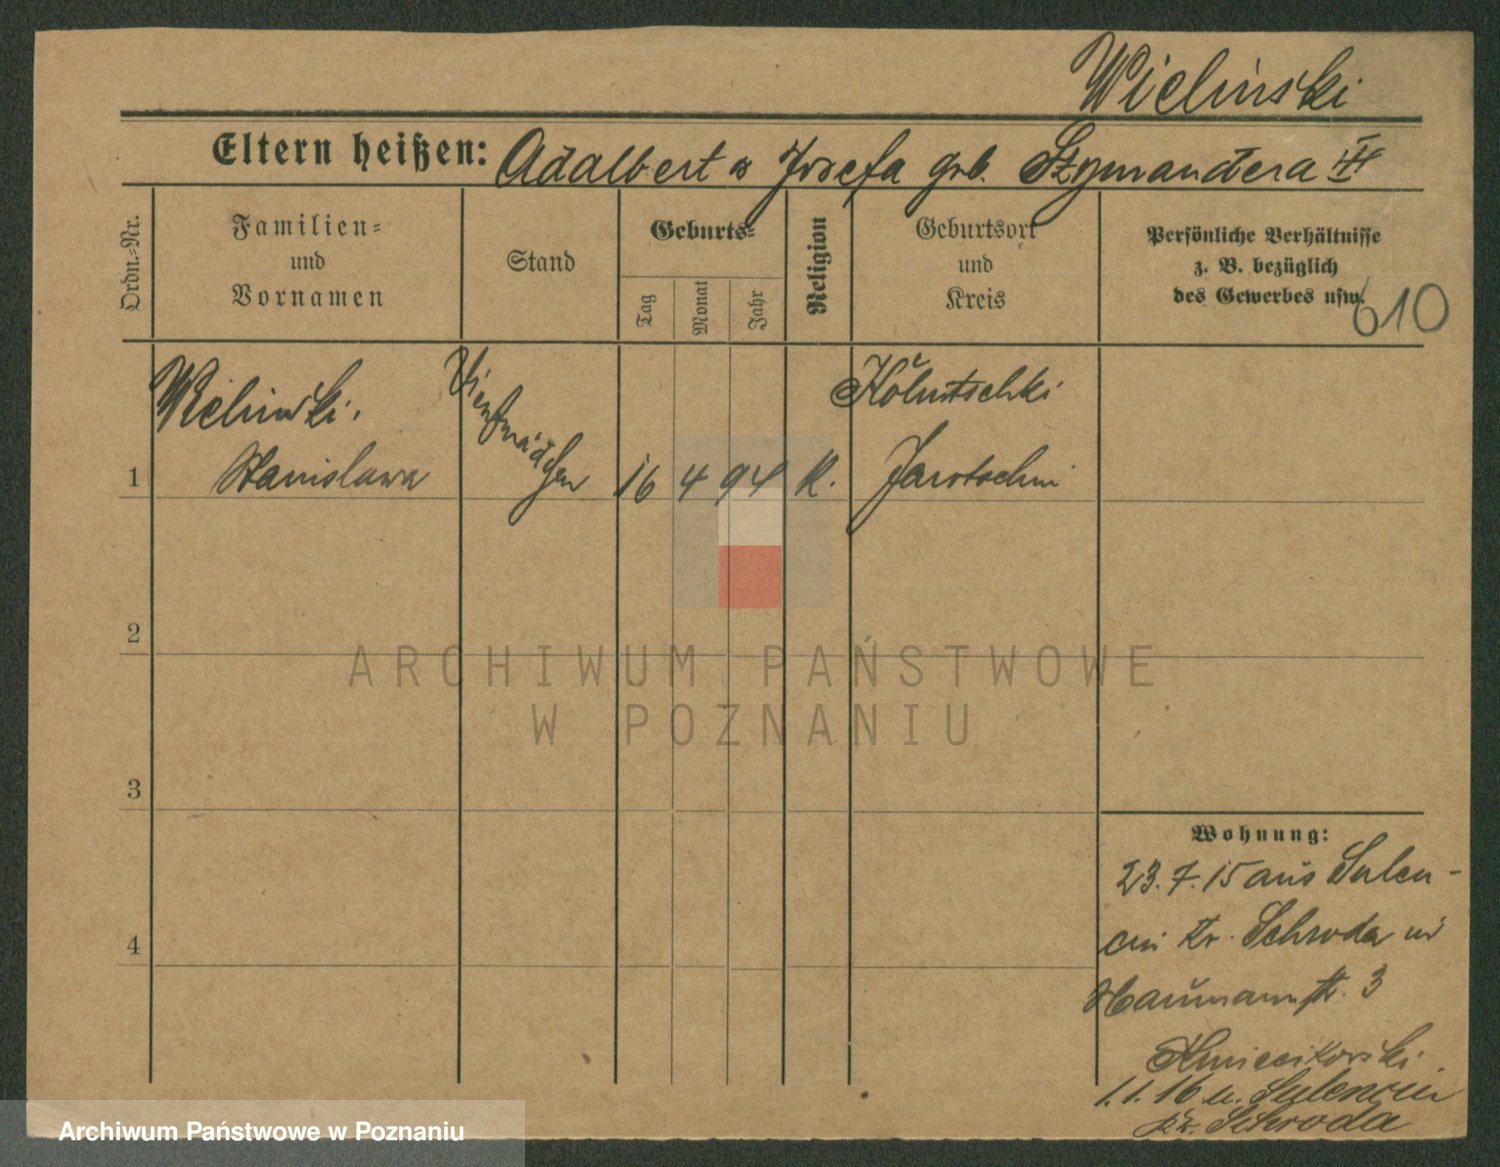 Wielinski
Eltern heißen: Adalbert u Josefa geb. Szymandera III
Ordn.-Nr.
Familien-
und
Vornamen
Stand
Geburts-
Tag
Monat
Jahr
Religion
Geburtsort
und
Kreis
Persönliche Verhältnisse
z. B. bezüglich
des Gewerbes usw.
610
Wielinski.
Stanislawa
Dienstmädchen
1
16 4 94 K.
Jarotschin
2
3
4
ARCHIWUM PAŃSTWOWE
W POZNANIU
Wohnung:
23.7.15 aus Sulen-
cin Kr. Schroda
Naumannstr. 3
Kmiecikowski
1.1.16 n. Sulencin
Kr. Schroda
Archiwum Państwowe w Poznaniu